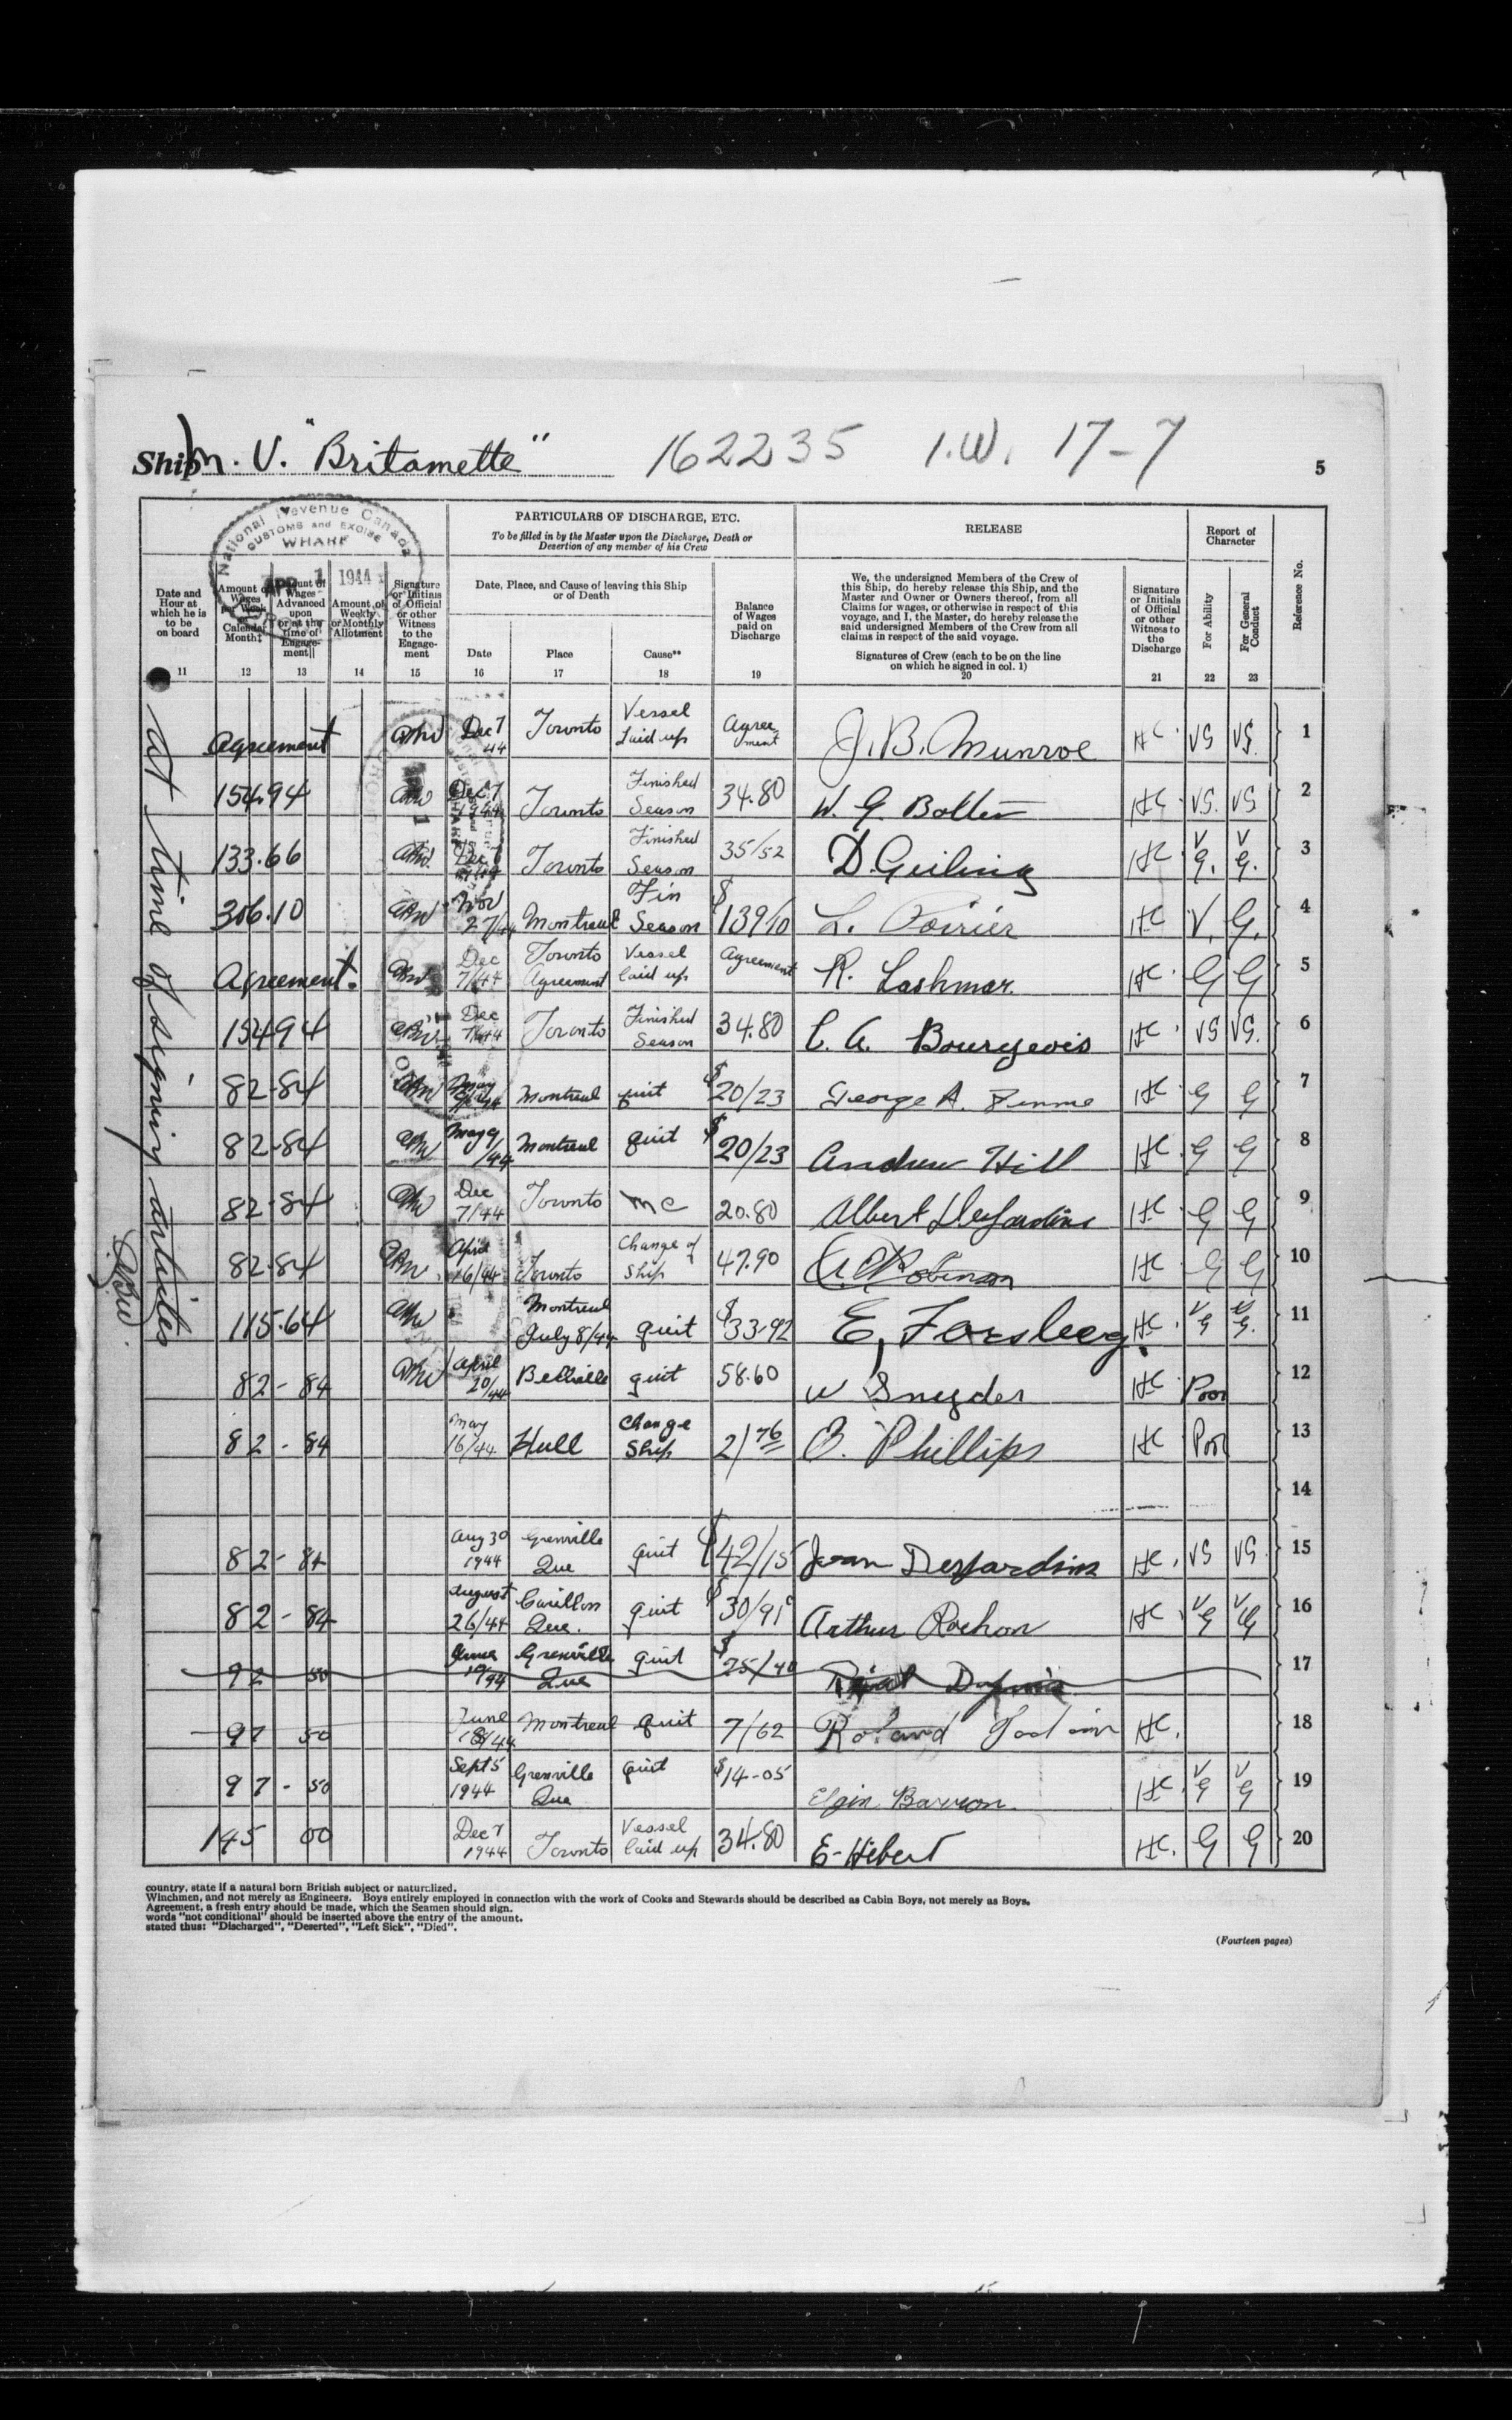 Ship M. V. "Britamette" 162235 I.W. 17-7
5
National Revenue Canada
CUSTOMS and EXCISE
WHARF
APR 1 1944
PARTICULARS OF DISCHARGE, ETC.
To be filled in by the Master upon the Discharge, Death or
Desertion of any member of his Crew
RELEASE
Report of
Character
Date and
Hour at
which he is
to be
on board
Amount of
Wages
per Week
Calendar
Month‡
Amount of
Wages
Advanced
upon
or at the
time of
Engage-
ment||
Amount of
Weekly
or Monthly
Allotment
Signature
or Initials
of Official
or other
Witness
to the
Engage-
ment
Date, Place, and Cause of leaving this Ship
or of Death
Date Place Cause**
Balance
of Wages
paid on
Discharge
We, the undersigned Members of the Crew of
this Ship, do hereby release this Ship, and the
Master and Owner or Owners thereof, from all
Claims for wages, or otherwise in respect of this
voyage, and I, the Master, do hereby release the
said undersigned Members of the Crew from all
claims in respect of the said voyage.
Signatures of Crew (each to be on the line
on which he signed in col. 1)
Signature
or Initials
of Official
or other
Witness to
the
Discharge
For Ability
For General
Conduct
Reference No.
11 12 13 14 15 16 17 18 19 20 21 22 23
At time of signing articles
Agreement Dec 7 44 Toronto Vessel Laid up Agreement J. B. Munroe HC VG VG. 1
154.94 Dec 7 1944 Toronto Finished Season 34.80 W. G. HC VG. VG 2
133.66 Dec Toronto Finished Season 35/52 D. Geiling HC V G. V G. 3
306.10 Nov 27/44 Montreal Fin Season $139/10 L. Poirier HC V. G. 4
Agreement. Dec 7/44 Toronto Agreement Vessel laid up Agreement R. Lashmar. HC G G 5
154.94 Dec 7/44 Toronto Finished Season 34.80 C. A. Bourgeois HC VG VG. 6
82.84 May Montreal quit $20/23 George A. HC G G 7
82.84 May 9/44 Montreal quit $20/23 Andrew Hill HC G G 8
82.84 Dec 7/44 Toronto MC 20.80 Albert Desjardins HC G G 9
82.84 April 16/44 Toronto Change of Ship 47.90 Robinson HC G G 10
115.64 Montreal July 8/44 quit $33-92 E. Forsberg HC V G V G. 11
82-84 April 20/44 Belleville quit 58.60 W Snyder HC Poor 12
82-84 May 16/44 Hull Change Ship 21 76 B. Phillips HC Poor 13
14
82-84 Aug 30 1944 Grenville Que quit $42/15 Jean Desjardins HC. VG VG 15
82-84 August 26/44 Carillon Que. quit $30/91 Arthur Rochon HC V G V G 16
92 50 June Grenville Que quit $25/40 17
97 50 June Montreal quit 7/62 Roland HC. 18
97-50 Sept 5 1944 Grenville Que quit $14-05 Elgin Barron. HC V G V G 19
145 00 Dec 7 1944 Toronto Vessel laid up 34.80 E-Hebert HC. G G 20
country, state if a natural born British subject or naturalized.
Winchmen, and not merely as Engineers. Boys entirely employed in connection with the work of Cooks and Stewards should be described as Cabin Boys, not merely as Boys.
Agreement, a fresh entry should be made, which the Seamen should sign.
words "not conditional" should be inserted above the entry of the amount.
stated thus: "Discharged", "Deserted", "Left Sick", "Died".
(Fourteen pages)